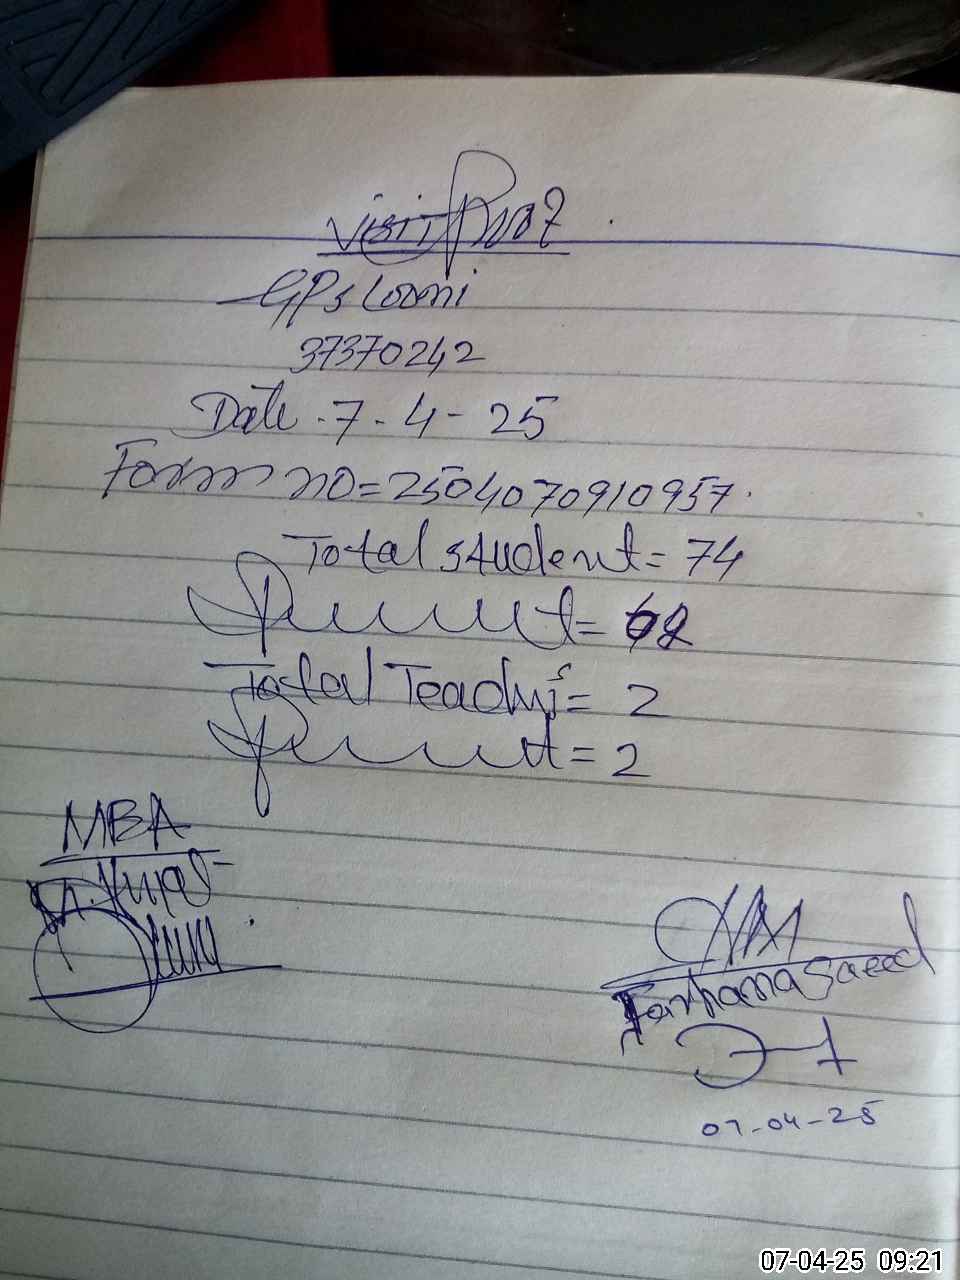 Visit Proof
GPS Loxmi
37370242
Date . 7 - 4 - 25
Form no = 2504070910957.
Total student = 74
Present = 68
Total Teachers = 2
Present = 2
MBA
HM
Farhana Saeed
07-04-25
07-04-25 09:21